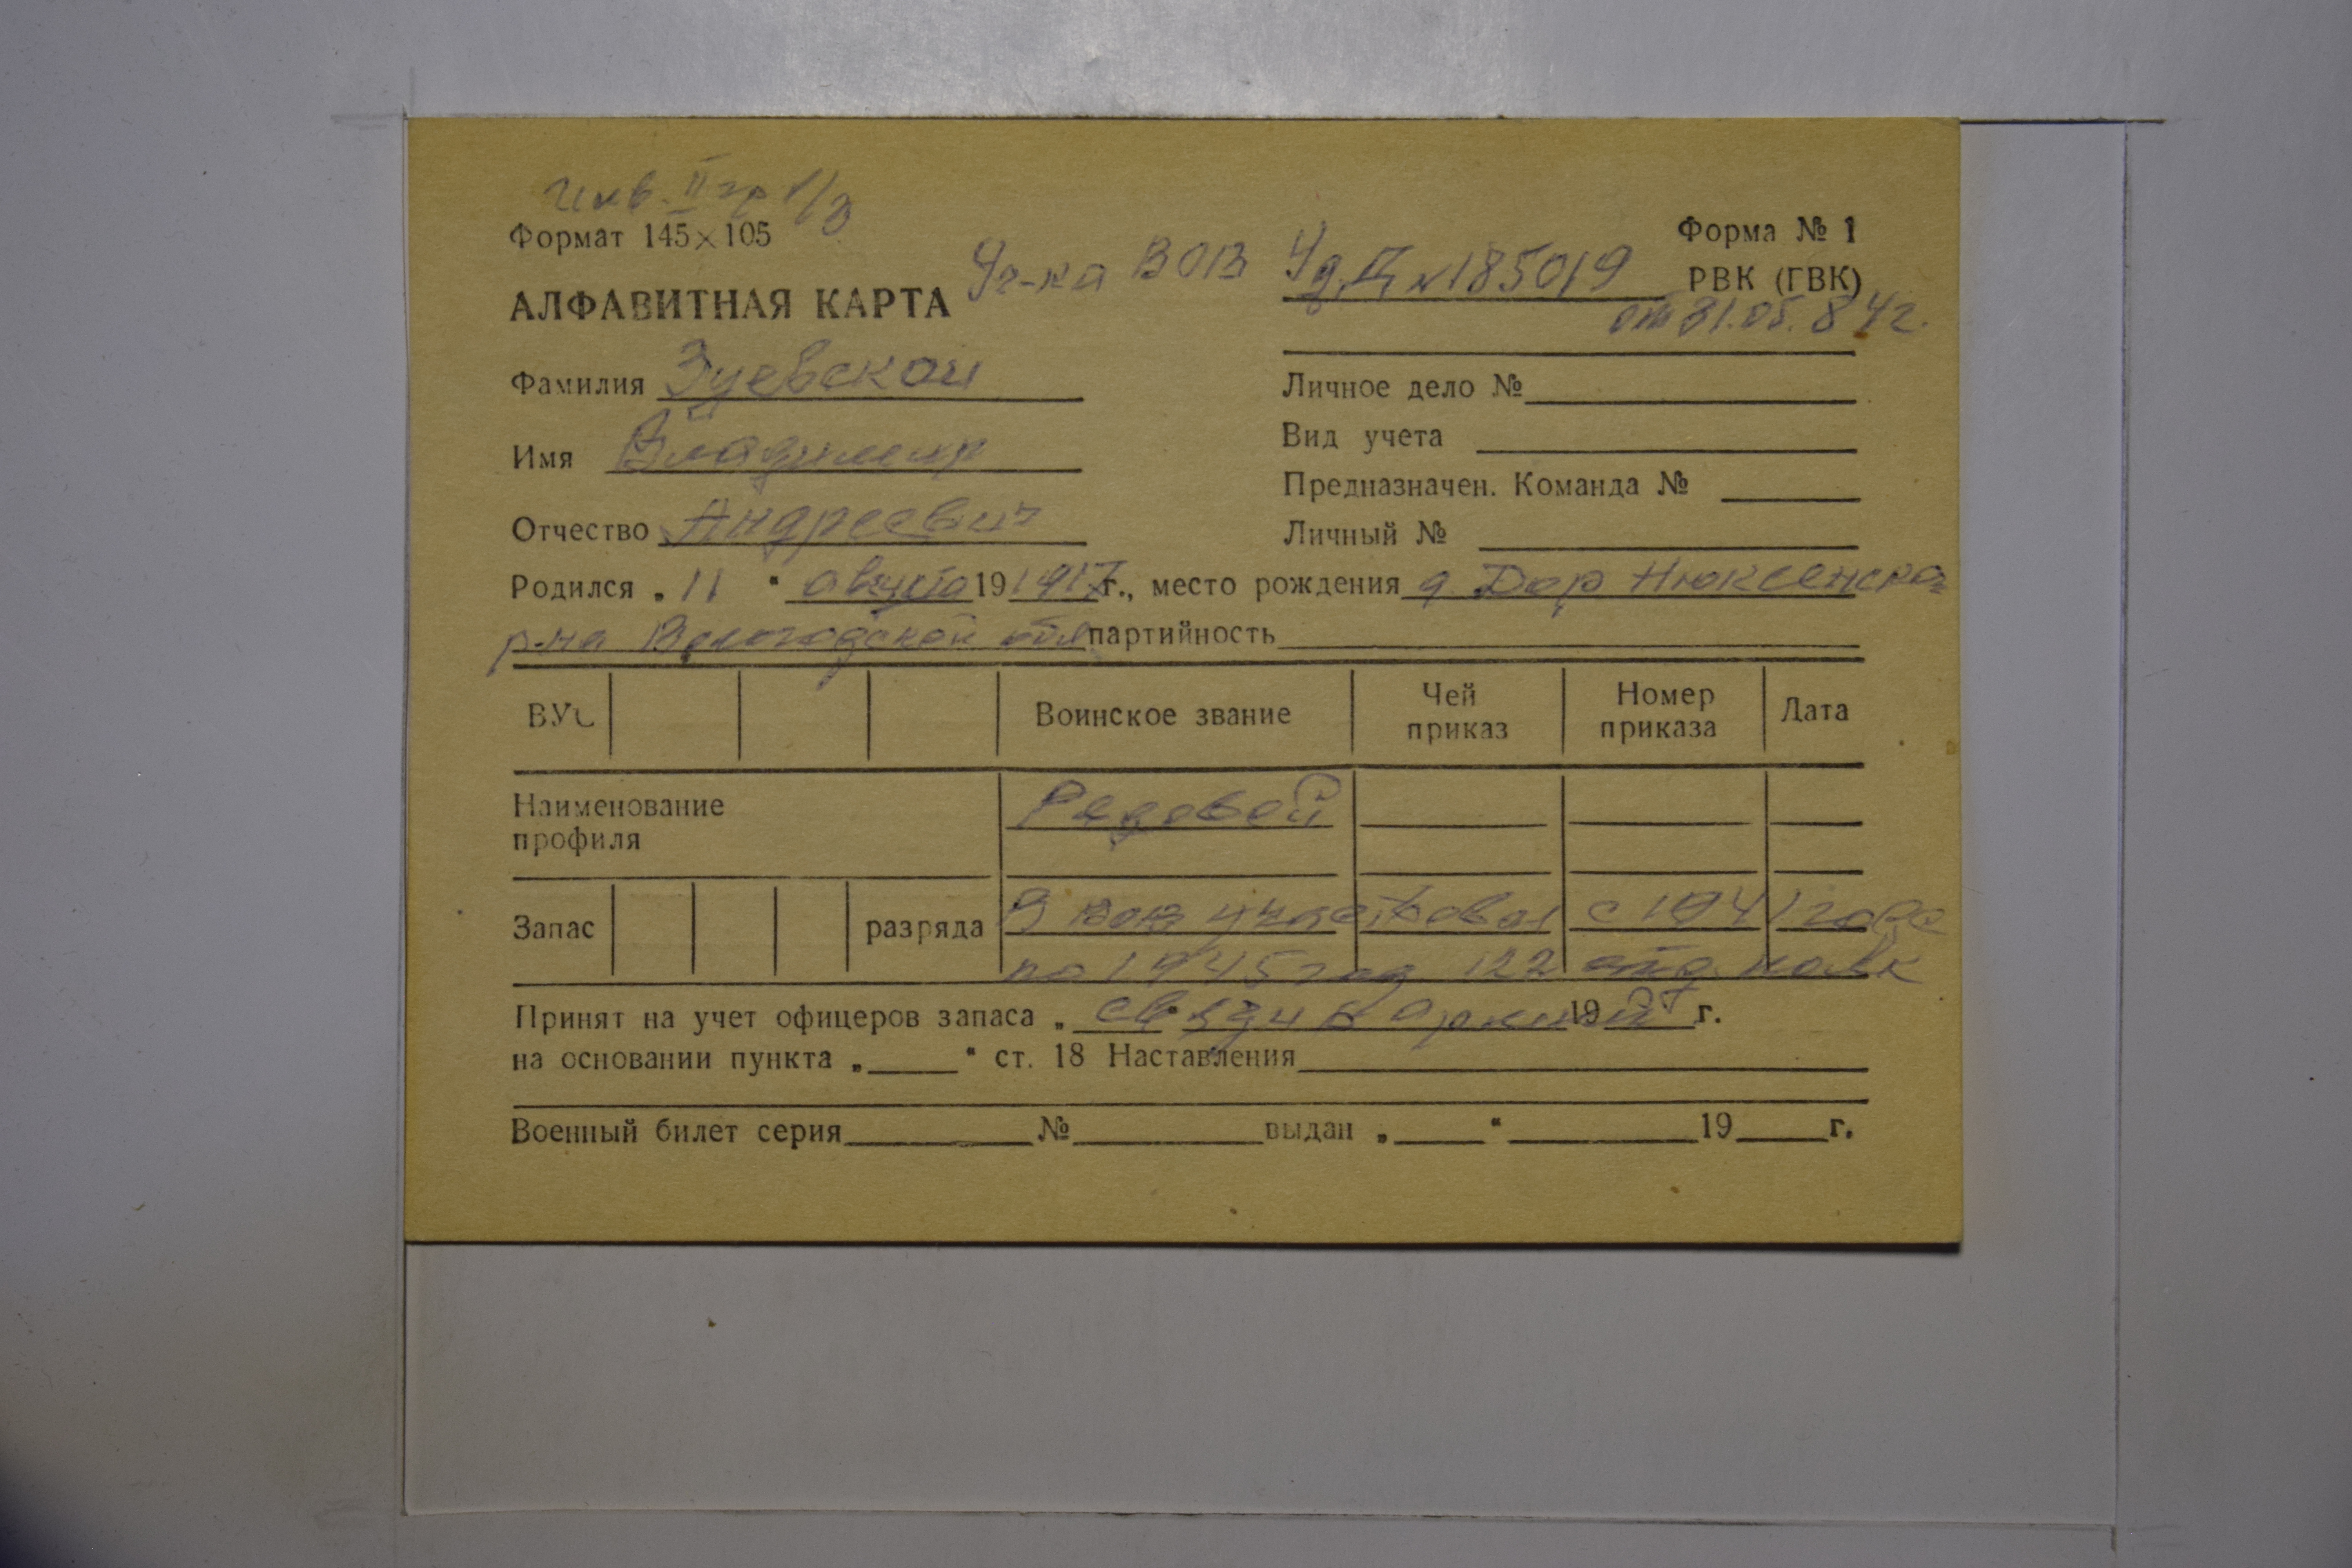 Инв. II гр 1/3
Формат 145×105
Форма № 1
АЛФАВИТНАЯ КАРТА Уч-ка ВОВ Уд. Д №185019 РВК (ГВК)
от 31.05.84г.
Фамилия Зуевской
Личное дело №
Имя Владимир
Вид учета
Предназначен. Команда №
Отчество Андреевич
Личный №
Родился „ 11 “ августа 19 1917 г., место рождения д. Дор Нюксенско-
р-на Вологодской обл партийность
ВУС Воинское звание Чей приказ Номер приказа Дата
Наименование профиля Рядовой
Запас разряда В ВОВ участвовал с 1941 года
по 1945 год 122 отд. полк
Принят на учет офицеров запаса „ связи 19 г.
на основании пункта „ “ ст. 18 Наставления
Военный билет серия № выдан „ “ 19 г.